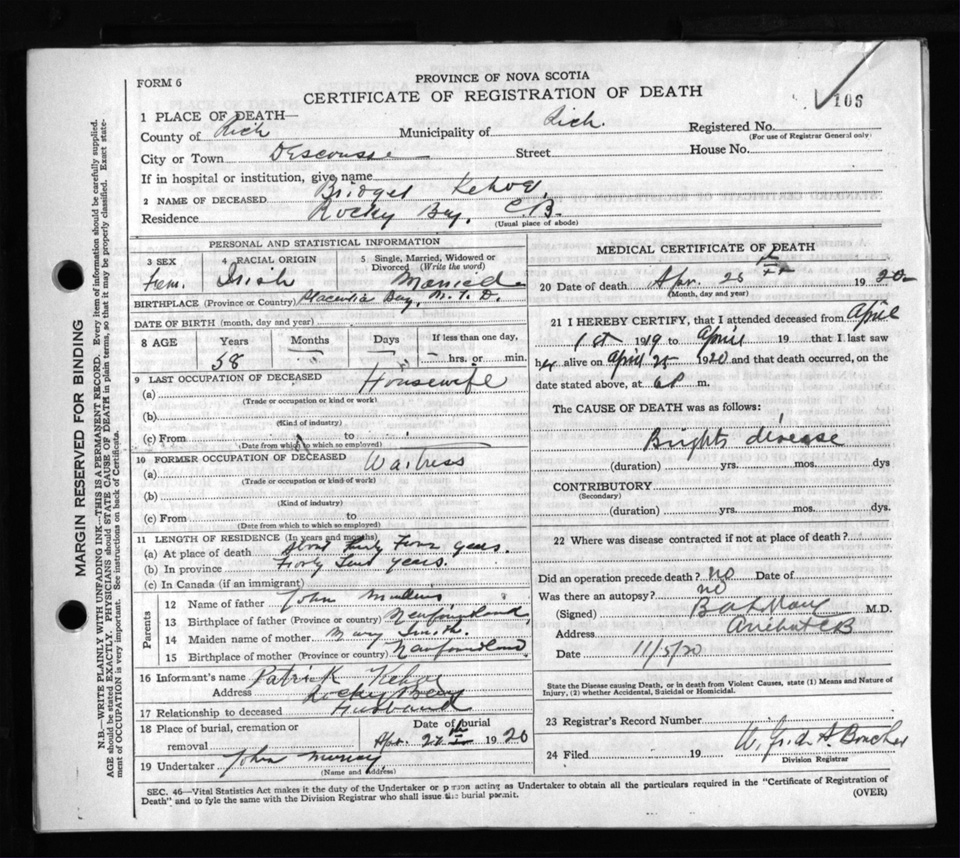 FORM 6
PROVINCE OF NOVA SCOTIA
CERTIFICATE OF REGISTRATION OF DEATH
106
1 PLACE OF DEATH—
County of Rich Municipality of Rich. Registered No.
(For use of Registrar General only)
City or Town Descousse Street House No.
If in hospital or institution, give name
2 NAME OF DECEASED Bridget Kehoe,
Residence Rocky Bay, C.B.
(Usual place of abode)
PERSONAL AND STATISTICAL INFORMATION
3 SEX 4 RACIAL ORIGIN 5 Single, Married, Widowed or Divorced (Write the word)
fem. Irish Married
BIRTHPLACE (Province or Country) Placentia Bay, N.F.D.
DATE OF BIRTH (month, day and year)
8 AGE Years Months Days If less than one day,
58 hrs. or min.
9 LAST OCCUPATION OF DECEASED
(a) Housewife
(Trade or occupation or kind or work)
(b)
(Kind of industry)
(c) From to
(Date from which to which so employed)
10 FORMER OCCUPATION OF DECEASED
(a) Waitress
(Trade or occupation or kind of work)
(b)
(Kind of industry)
(c) From to
(Date from which to which so employed)
11 LENGTH OF RESIDENCE (In years and months)
(a) At place of death About Four years.
(b) In province years.
(c) In Canada (if an immigrant)
Parents
12 Name of father John Mullins
13 Birthplace of father (Province or country) Newfoundland,
14 Maiden name of mother Mary Smith.
15 Birthplace of mother (Province or country) Newfoundland
16 Informant's name Patrick Kehoe
Address Rocky Bay
17 Relationship to deceased Husband
18 Place of burial, cremation or removal Date of burial
Apr. 27th 1920
19 Undertaker John
(Name and address)
MEDICAL CERTIFICATE OF DEATH
20 Date of death Apr. 25th 1920
(Month, day and year)
21 I HEREBY CERTIFY, that I attended deceased from April
1st 1919 to April 19 that I last saw
her alive on April 25 1920 and that death occurred, on the
date stated above, at 6P m.
The CAUSE OF DEATH was as follows:
Brights disease
(duration) yrs. mos. dys
CONTRIBUTORY
(Secondary)
(duration) yrs. mos. dys.
22 Where was disease contracted if not at place of death?
Did an operation precede death? no Date of
Was there an autopsy? no
(Signed) M.D.
Address Arichat CB
Date 11/5/20
State the Disease causing Death, or in death from Violent Causes, state (1) Means and Nature of
Injury, (2) whether Accidental, Suicidal or Homicidal.
23 Registrar's Record Number
24 Filed 19
Division Registrar
SEC. 46—Vital Statistics Act makes it the duty of the Undertaker or person acting as Undertaker to obtain all the particulars required in the "Certificate of Registration of
Death" and to fyle the same with the Division Registrar who shall issue the burial permit. (OVER)
MARGIN RESERVED FOR BINDING
N.B.—WRITE PLAINLY WITH UNFADING INK—THIS IS A PERMANENT RECORD. Every item of information should be carefully supplied.
AGE should be stated EXACTLY. PHYSICIANS should STATE CAUSE OF DEATH in plain terms, so that it may be properly classified. Exact state-
ment of OCCUPATION is very important. See instructions on back of Certificate.